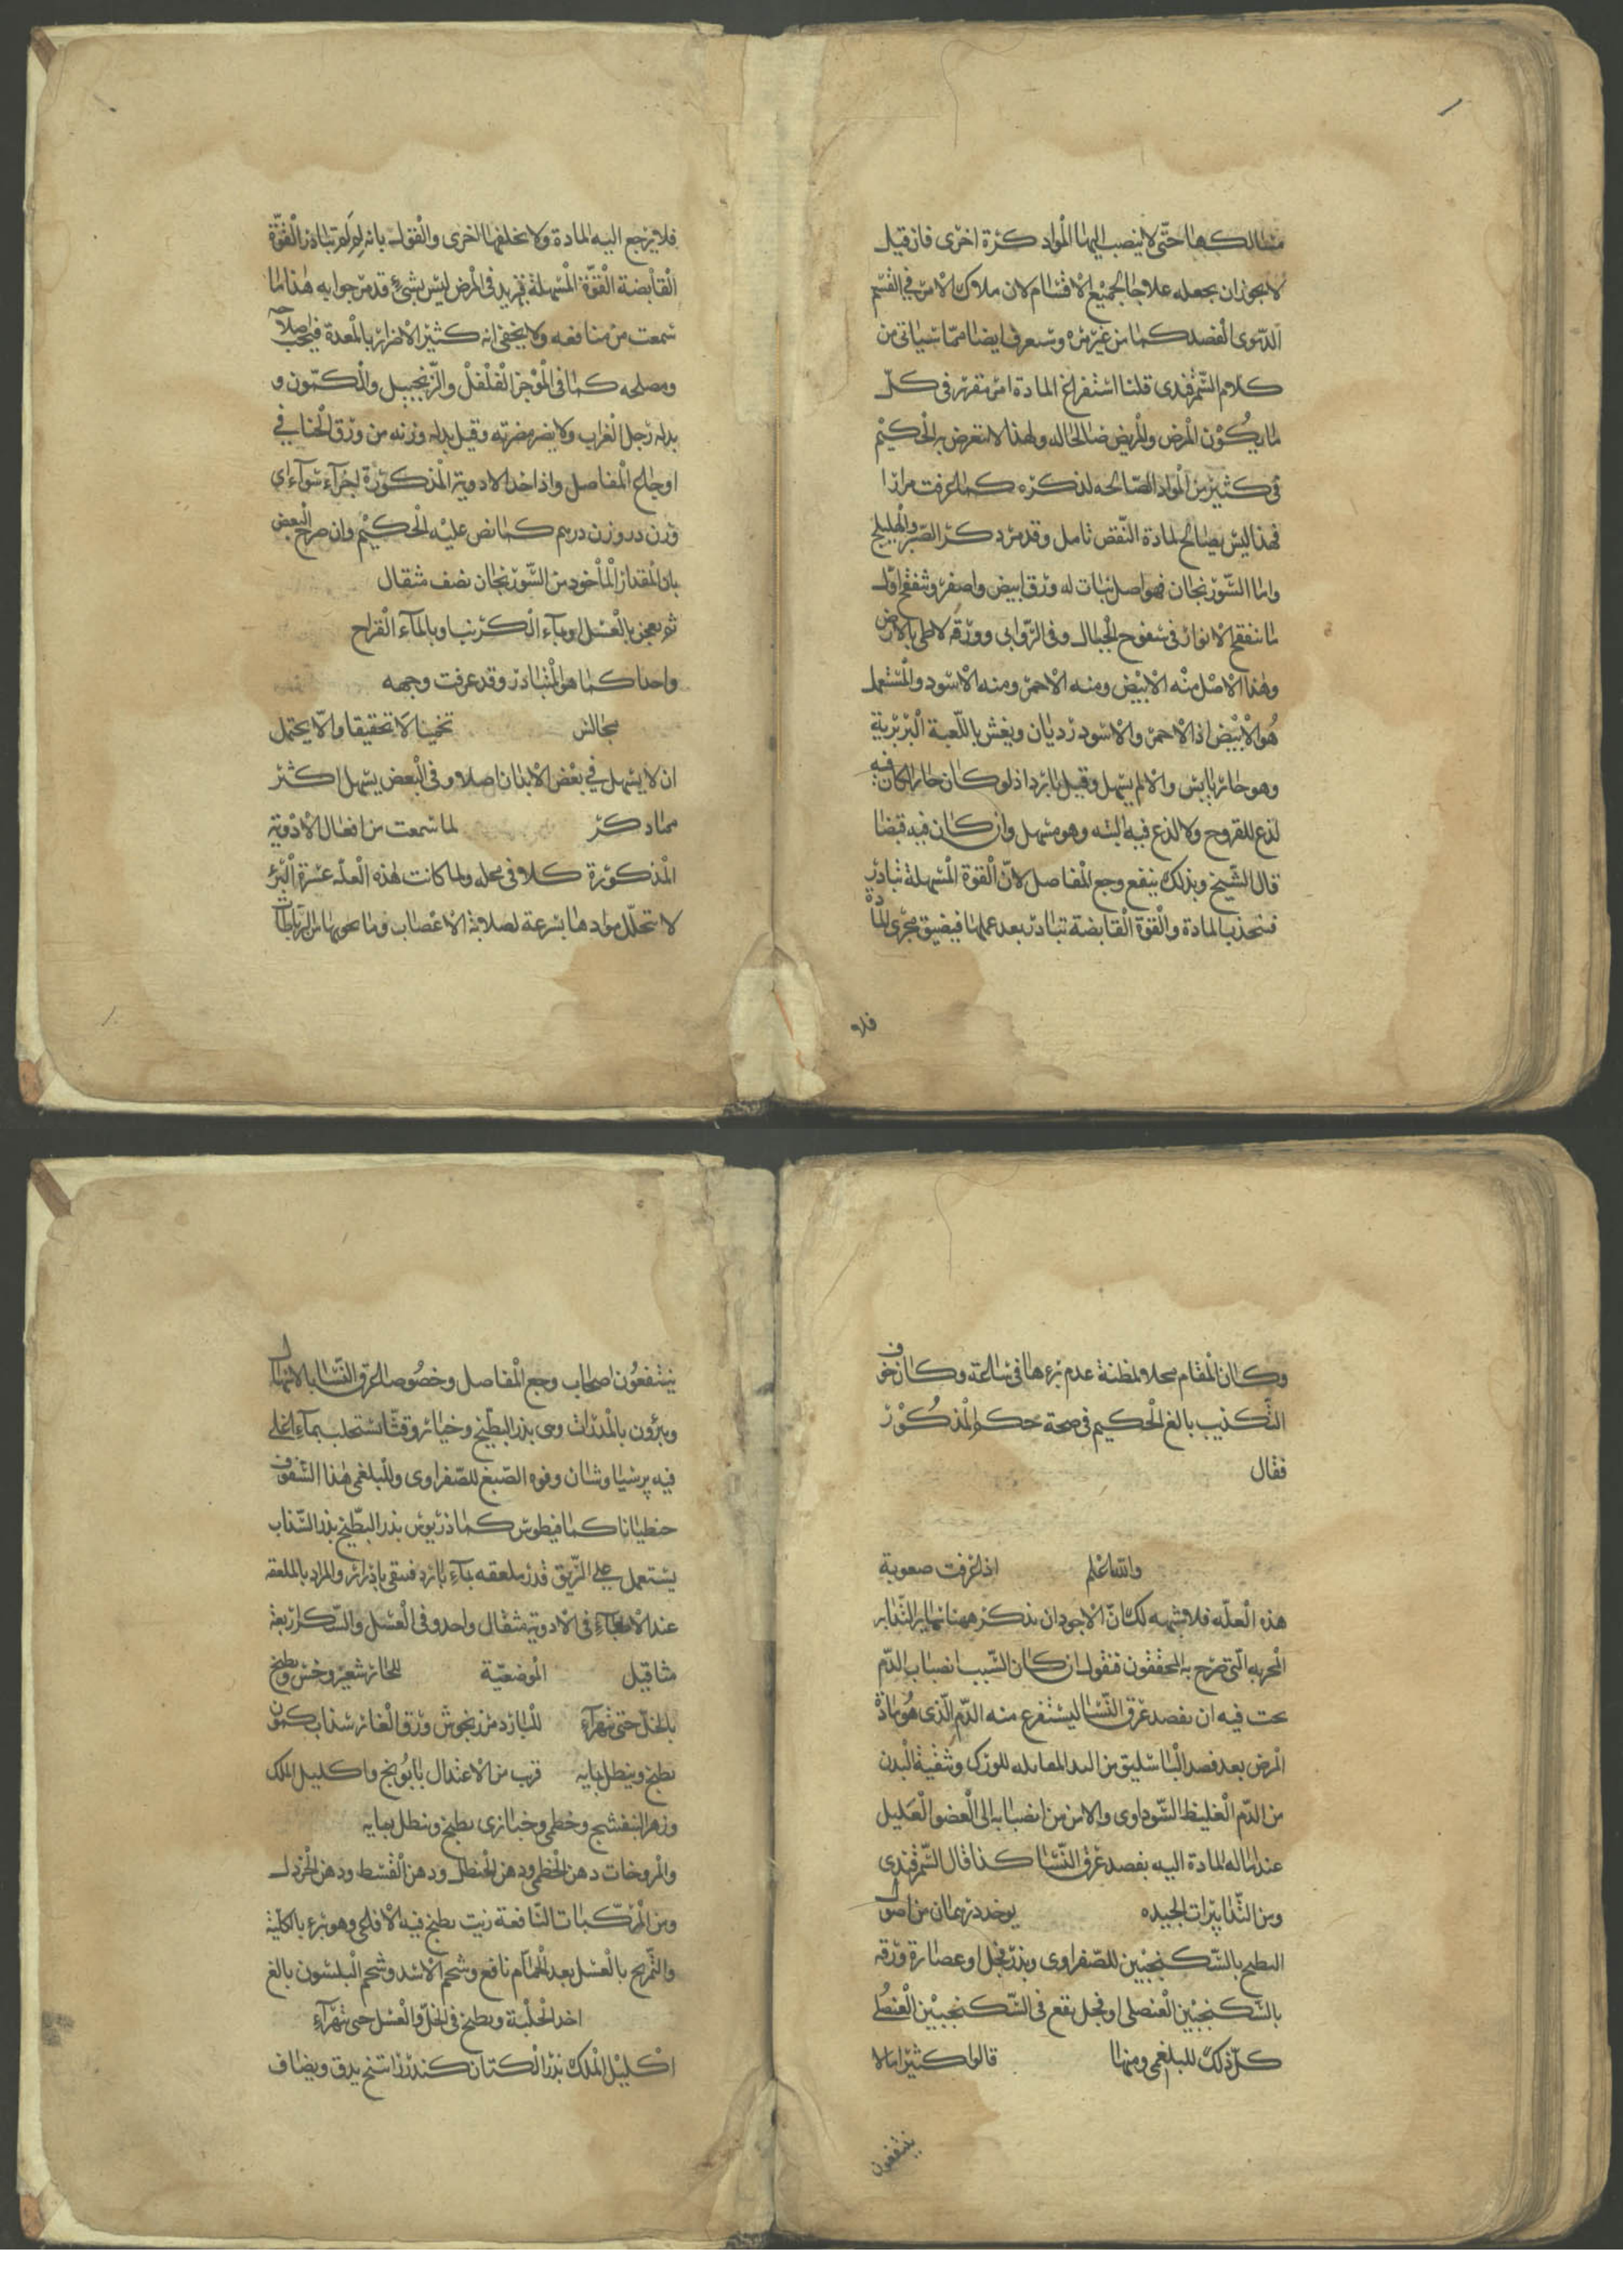 مسالكها حتى لا ينصب اليها المواد كرة اخرى فان قيل
لا يجوز ان يجعله علاجا لجميع الاقسام لان ملاك الامر في القسم
الدموى الفصد كما مر غير مره وستعرف ايضا مما سياتى من
كلام السمرقندى قلنا استفراغ المادة امر مقرر فى كل
ما يكون المرض والمريض صالحا له ولهذا لا يتعرض به الحكيم
فى كثير من المواد الصالحه لذكره كما عرفت مرارا
فهذا ليس بصالح لمادة النقض تامل وقد مر ذكر الصبر والهليلج
واما السورنجان فهو اصل نبات له ورق ابيض واصفر وتنفتح اول
ما تنفتح الانوار فى سفوح الجبال وفى الروابى وورقه لاطى بالارض
وهذا الاصل منه الابيض ومنه الاحمر ومنه الاسود والمستعمل
هو الابيض اذ الاحمر والاسود رديان ويغش باللعبة البربرية
وهو حار يابس والا لم يسهل وقيل بارد اذ لو كان حارا لكان فيه
لذع للقروح ولا لذع فيه البته وهو مسهل وان كان فيه قبضا
قال الشيخ وبذلك ينفع وجع المفاصل لان القوة المسهلة تبادر
فتجذب المادة والقوة القابضة تبادر بعد عملها فيضيق مجرى المادة
فلا
فلا يرجع اليه المادة ولا يخلفها اخرى والقول بانه لو لم تبادر القوة
القابضة القوة المسهلة فيزيد فى المرض ليس بشىء قد مر جوابه هذا ما
سمعت من منافعه ولا يخفى انه كثير الاضرار بالمعدة فيجب اصلاحه
ومصلحه كما فى الموجز الفلفل والزنجبيل والكمون و
بدله رجل الغراب ولا يضر مضرته وقيل بدله وزنه من ورق الحنا في
اوجاع المفاصل واذا اخذ الادوية المذكورة اجزآء سوآء اى
وزن درهم كما نص عليه الحكيم وان صرح البعض
بان المقدار الماخوذ من السورنجان نصف مثقال
ثم يعجن بالعسل او بمآء الكرنب او بالمآء القراح
واحدا كما هو المتبادر وقد عرفت وجهه
مجالس تخمينا لا تحقيقا والا يحتمل
ان لا يسهل في بعض الابدان اصلا وفى البعض يسهل اكثر
مما ذكر لما سمعت من افعال الادوية
المذكورة كلا فى محله ولما كانت هذه العلة عسرة البرء
لا تتحلل موادها بسرعة لصلابة الاعصاب وما يحويها من الرباطات
وكان المقام محلا لمظنة عدم برءها فى ساعة وكان خوف
التكذيب بالغ الحكيم فى صحة حكم المذكور
فقال
والله اعلم اذا عرفت صعوبة
هذه العله فلا شبهه لك ان الاجود ان نذكر ههنا نهاية التدابر
المجربه التى صرح به المحققون فنقول ان كان السبب انصباب الدم
يجب فيه ان يفصد عرق النسا ليستفرع منه الدم الذى هو مادة
المرض بعد فصد الباسليق من اليد المقابله للورك وتنقية البدن
من الدم الغليظ السوداوى والامن من انصبابه الى العضو العليل
عند امالة المادة اليه بفصد عرق النسا كذا قال السمرقندى
ومن التدابيرات الجيده يوخذ درهمان من اصول
البطيخ بالسكنجبين للصفراوى وبذر فجل او عصارة ورقه
بالسكنجبين العنصلى او فجل يقع فى السكنجبين العنصلى
كل ذلك للبلغمى ومنها قالوا كثيرا ما
ينتفعون
ينتفعون اصحاب وجع المفاصل وخصوصا عرق النسا بالاسهال
ويبرؤن بالمدرات وهى بذر البطيخ وخيار وقثا تستحلب بمآء اغلى
فيه پرسياوشان وفوه الصبغ للصفراوى وللبلغمى هذا السفوف
جنطيانا كمافيطوس كماذريوس بذر البطيخ بذر السذاب
يستعمل على الريق قدر ملعقه بمآء بارد فينقى بادرار والمراد بالملعقه
عند الاطبآء فى الادوية مثقال واحد وفى العسل والسكر اربعة
مثاقيل الموضعية للحار شعير وخس ويطبخ
بالخل حتى تهرآء للبارد مرزنجوش ورق الغار سذاب كمون
يطبخ وينطل بمايه قرب من الاعتدال بابونج واكليل الملك
وزهر البنفسج وخطمى وخبازى يطبخ وينطل بمايه
والمروخات دهن الخطمى ودهن الحنظل ودهن القسط ودهن الخردل
ومن المركبات النافعة زيت يطبخ فيه الافاعى وهو يبرء بالكلية
والتمريخ بالعسل بعد الحمام نافع وشحم الاسد وشحم البلشون بالغ
اخذ الحلبة ويطبخ فى الخل والعسل حتى تهرآء
اكليل الملك بذر الكتان كندر راتنج يدق ويضاف